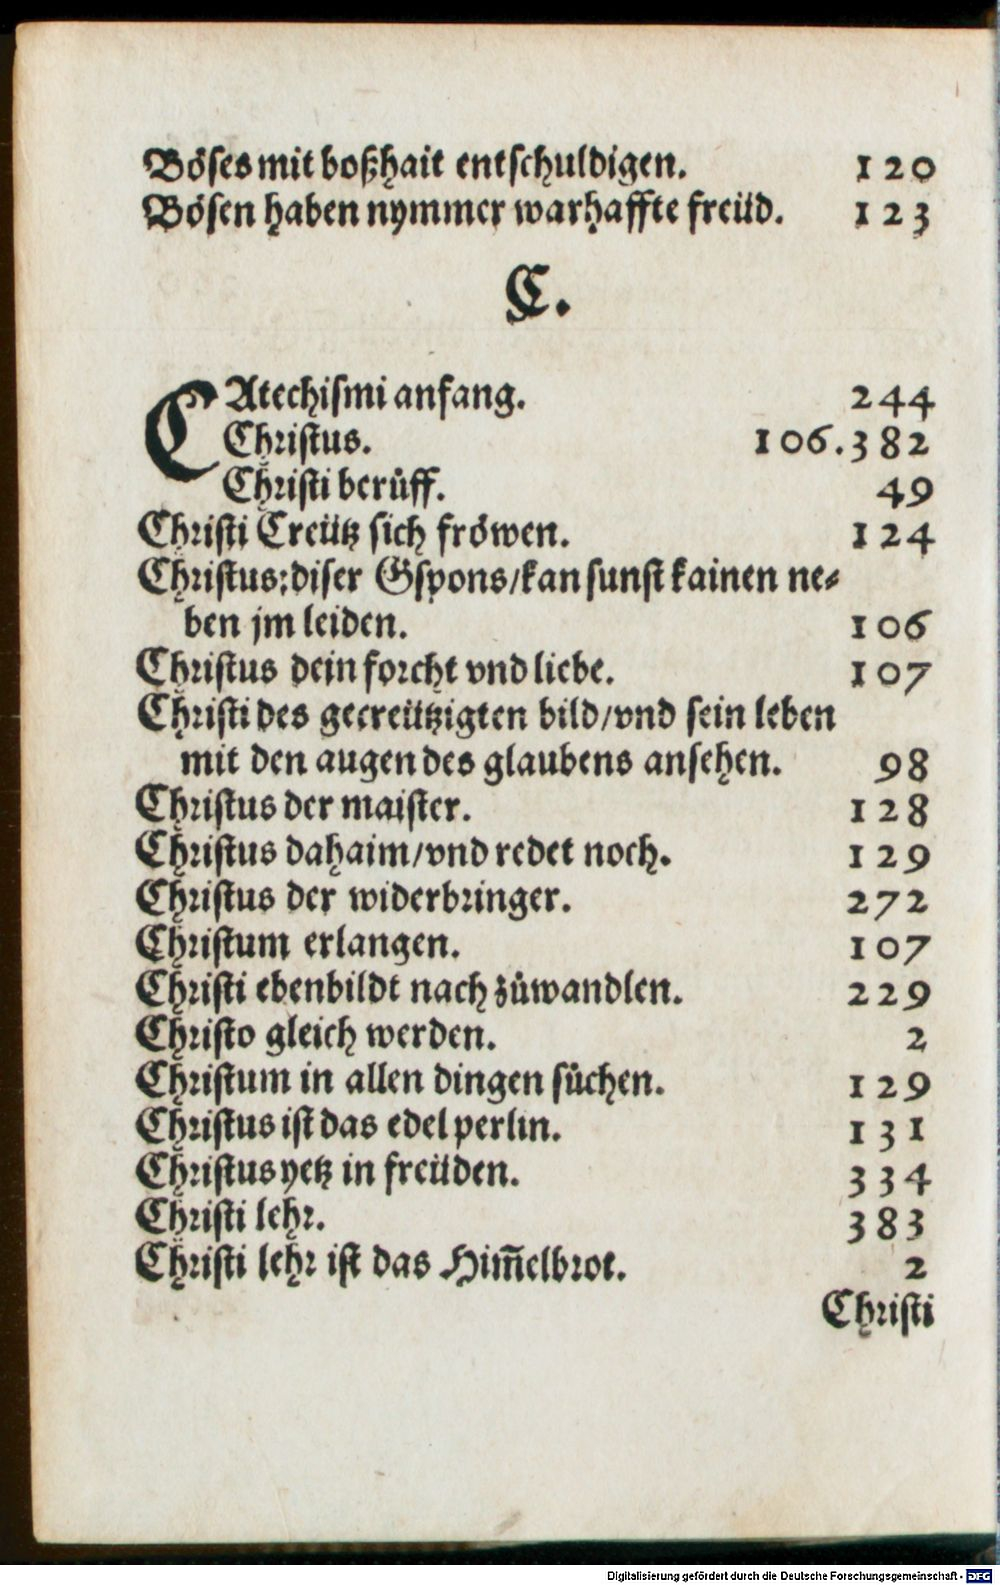 Böses mit boßhait entschuldigen. 120
Bösen haben nymmer warhaffte freüd. 123
C.
CAtechismi anfang. 244
Christus. 106.382
Christi berůff. 49
Christi Creütz sich fröwen. 124
Christus: diser Gspons/kan sunst kainen ne⸗
ben jm leiden. 106
Christus dein forcht vnd liebe. 107
Christi des gecreützigten bild/vnd sein leben
mit den augen des glaubens ansehen. 98
Christus der maister. 128
Christus dahaim/vnd redet noch. 129
Christus der widerbringer. 272
Christum erlangen. 107
Christi ebenbildt nach zůwandlen. 229
Christo gleich werden. 2
Christum in allen dingen sůchen. 129
Christus ist das edel perlin. 131
Christus yetz in freüden. 334
Christi lehr. 383
Christi lehr ist das Him̄elbrot. 2
Christi
Digitalisierung gefördert durch die Deutsche Forschungsgemeinschaft - DFG